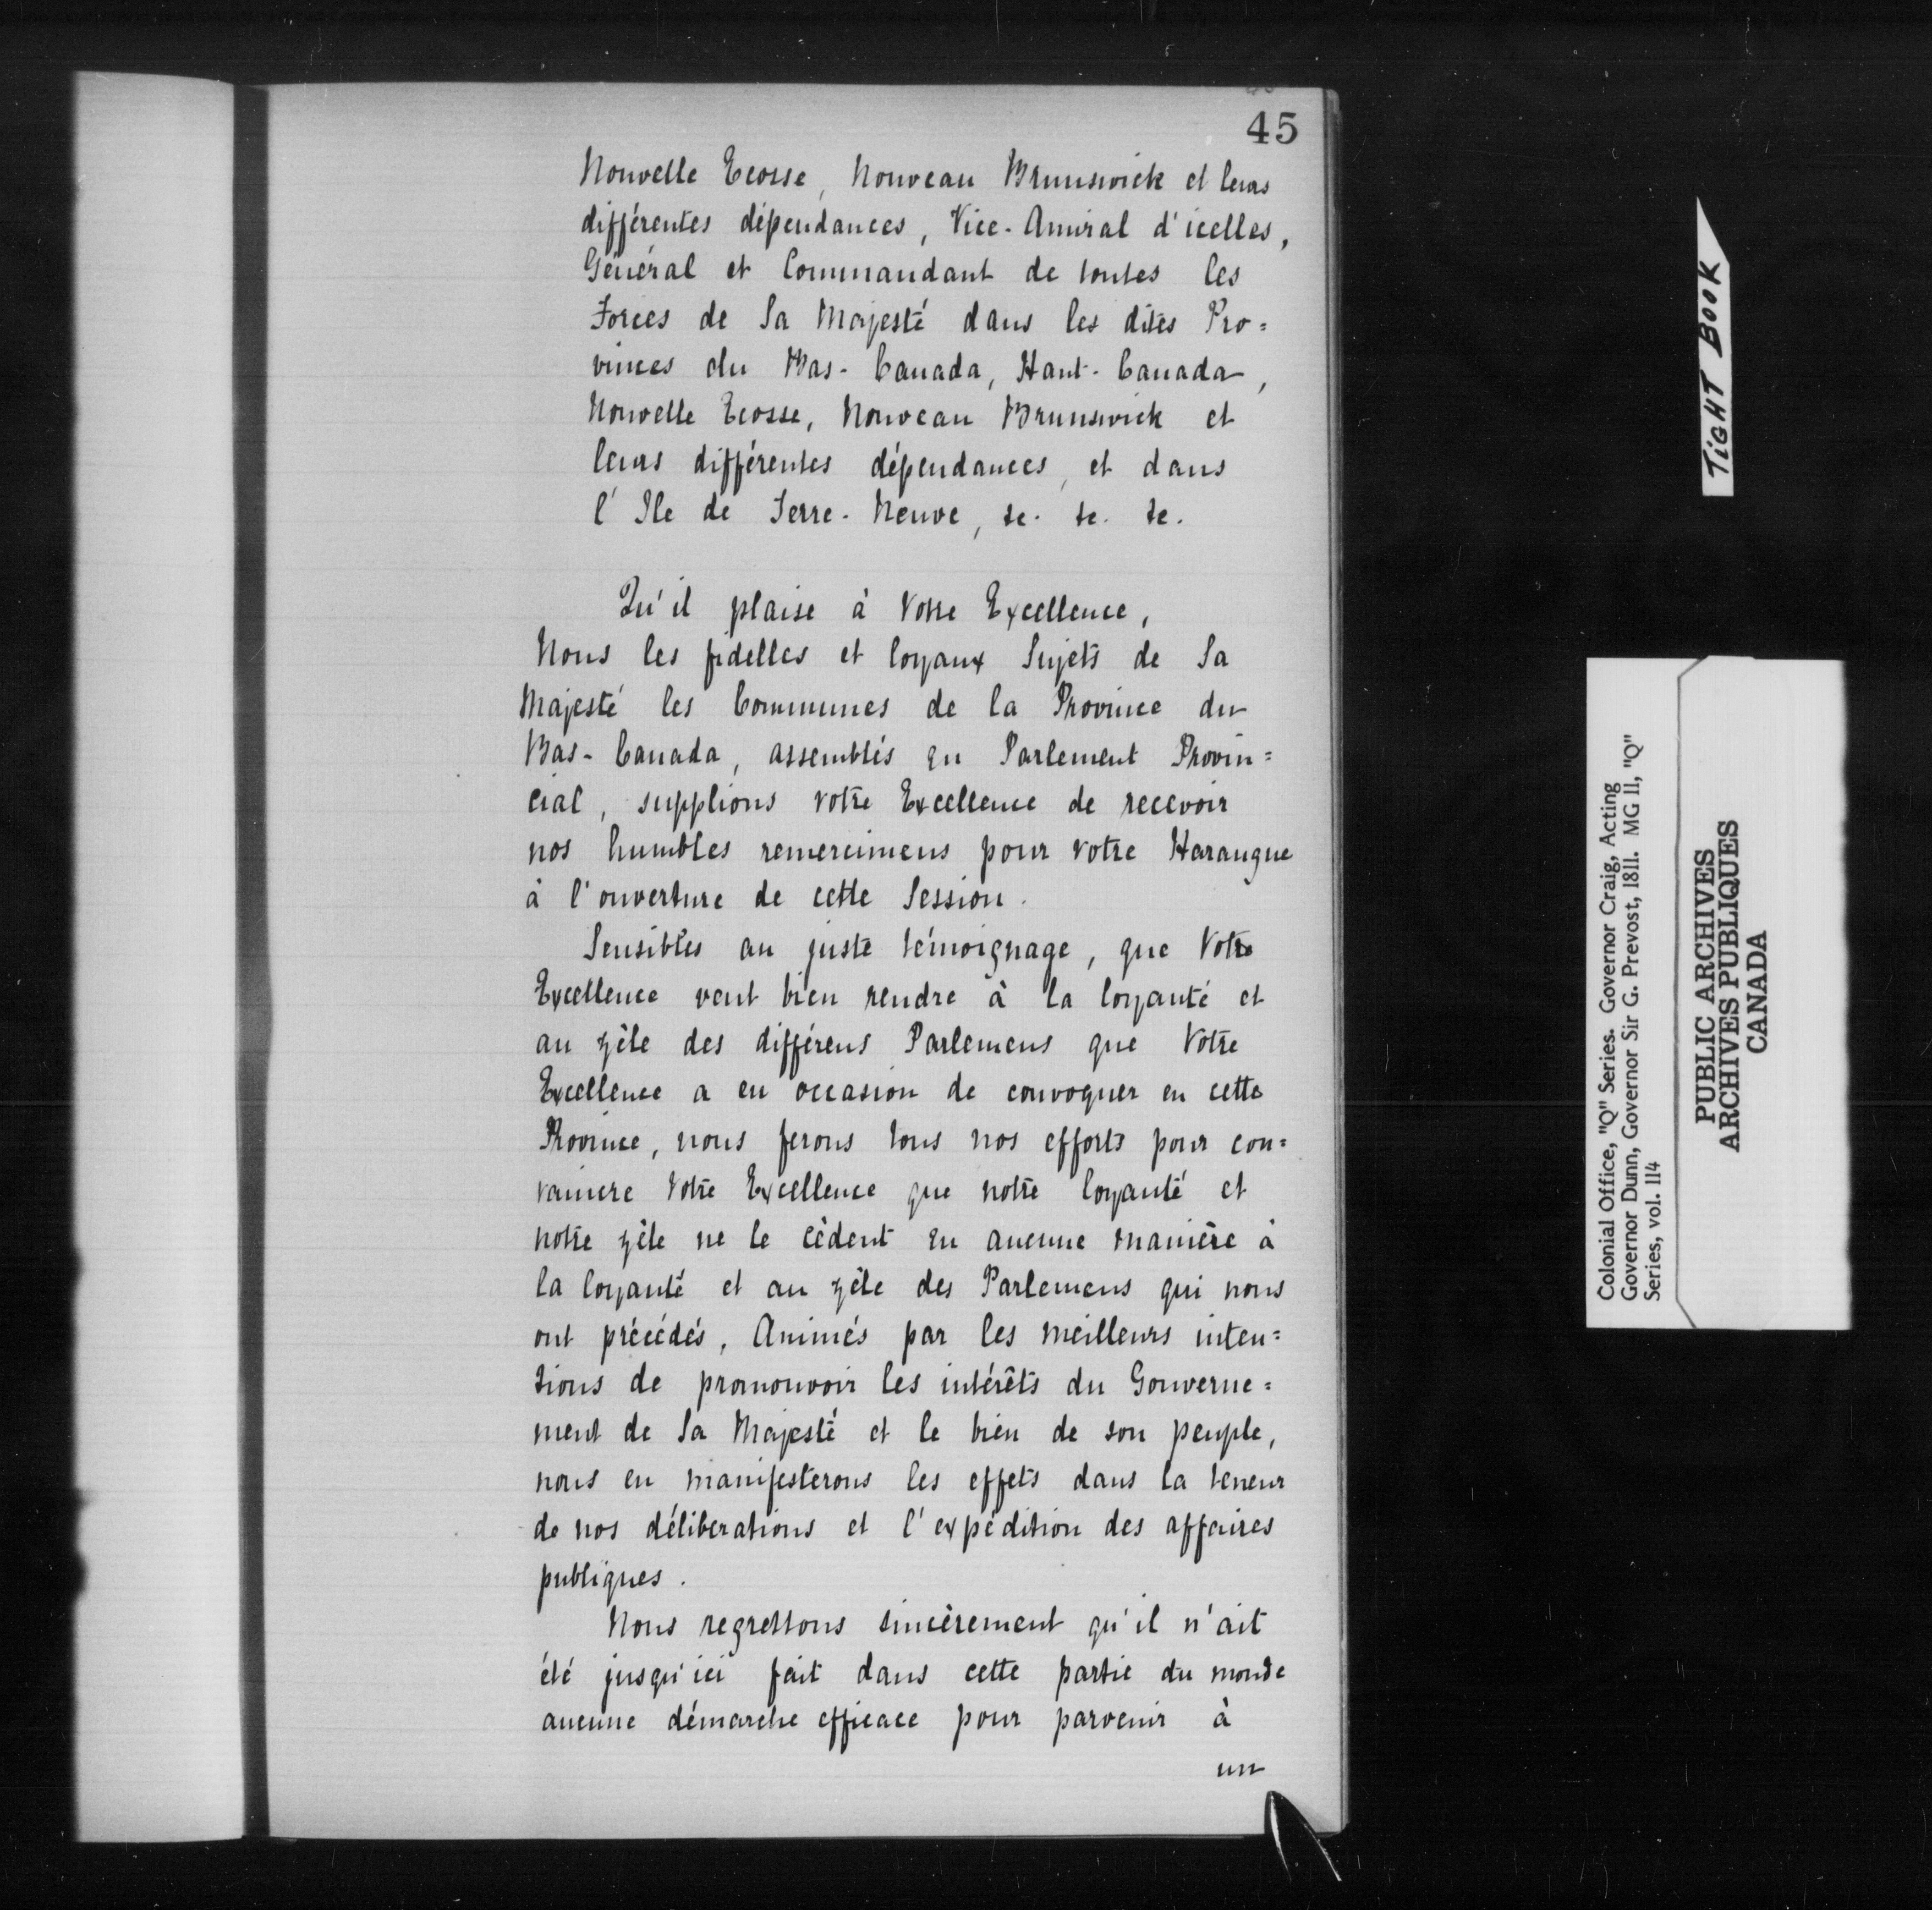 45
Nouvelle Ecosse, Nouveau Brunswick et leurs
différentes dépendances, Vice-Amiral d'icelles,
Général et Commandant de toutes les
Forces de Sa Majesté dans les dites Pro=
vinces du Bas-Canada, Haut-Canada,
Nouvelle Ecosse, Nouveau Brunswick et
leurs différentes dépendances, et dans
l'Ile de Terre-Neuve, &c. &c. &c.
Qu'il plaise à Votre Excellence,
Nous les fidelles et loyaux Sujets de Sa
Majesté les Communes de la Province du
Bas-Canada, assemblés en Parlement Provin=
cial, supplions votre Excellence de recevoir
nos humbles remercimens pour votre Harangue
à l'ouverture de cette Session.
Sensibles au juste témoignage, que Votre
Excellence veut bien rendre à la loyauté et
au zèle des différens Parlemens que Votre
Excellence a eu occasion de convoquer en cette
Province, nous ferons tous nos efforts pour con=
vaincre Votre Excellence que notre loyauté et
notre zèle ne le cèdent en aucune manière à
la loyauté et au zèle des Parlemens qui nous
ont précédés. Animés par les meilleurs inten=
tions de promouvoir les intérêts du Gouverne=
ment de Sa Majesté et le bien de son peuple,
nous en manifesterons les effets dans la teneur
de nos délibérations et l'expédition des affaires
publiques.
Nous regrettons sincèrement qu'il n'ait
été jusqu'ici fait dans cette partie du monde
aucune démarche efficace pour parvenir à
un
TIGHT BOOK
Colonial Office, "Q" Series. Governor Craig, Acting
Governor Dunn, Governor Sir G. Prevost, 1811. MG 11, "Q"
Series, vol. 114
PUBLIC ARCHIVES
ARCHIVES PUBLIQUES
CANADA